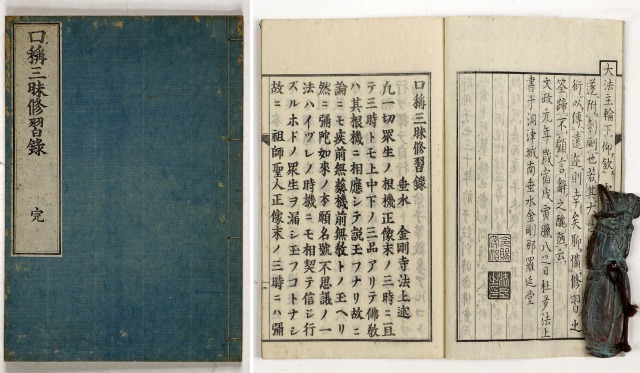 口稱三昧修習錄 完
大法主輪下仰欽
遂附剞劂也若其大
衍以傳遠從則幸矣聊備修習之
筌蹄不顧言辭之醜陋云
文政元年歲宿戊寅臘八之日杜多法上
書于洞津城南垂水金剛那羅延堂
口稱三昧修習錄
垂水 金剛寺法上述
凡一切衆生ノ根機正像末ノ三時ニ亘
テ三時トモ上中下ノ三品アリテ佛敎
ハ其根機ニ相應シテ說玉フナリ故ニ
論ニモ疾前無藥機前無敎トノ玉ヘリ
然ニ彌陀如來ノ本願名號不思議ノ一
法ハイヅレノ時機ニモ相契テ信シ行
ズルホドノ衆生ヲ漏シ玉フコトナシ
故ニ祖師聖人正像末ノ三時ニハ彌